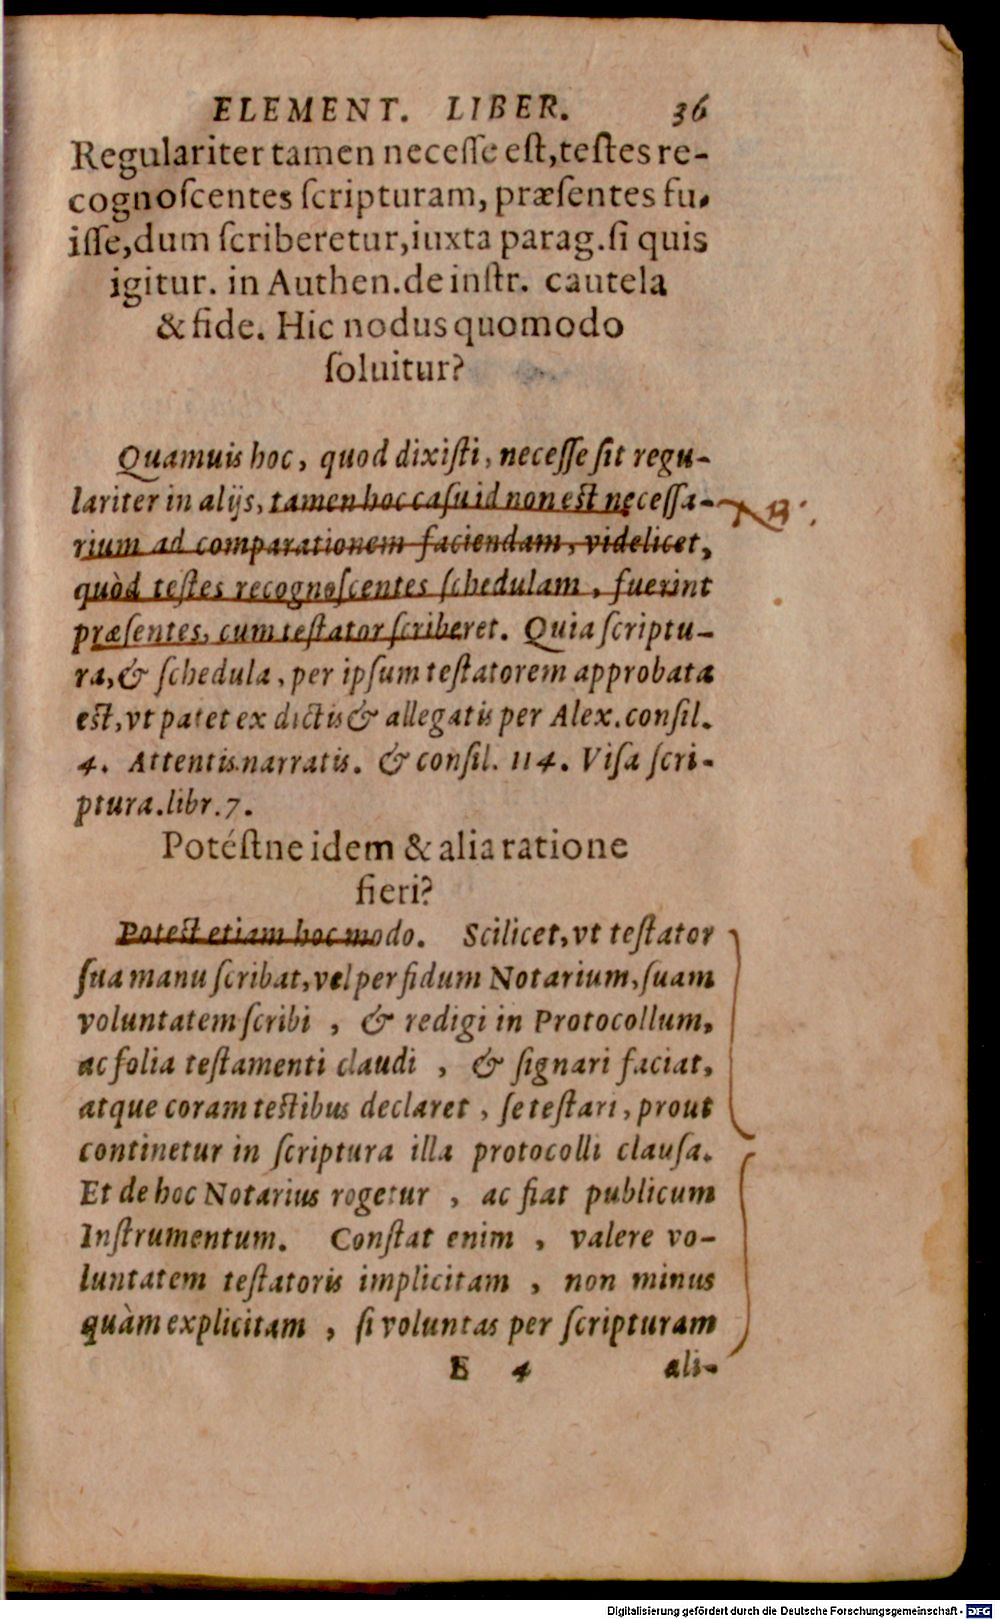 ELEMENT. LIBER. 36
Regulariter tamen neceſſe eſt, teſtes re-
cognoſcentes ſcripturam, præſentes fu-
iſſe, dum ſcriberetur, iuxta parag. ſi quis
igitur. in Authen. de inſtr. cautela
& fide. Hic nodus quomodo
ſoluitur?
Quamuis hoc, quod dixiſti, neceſſe ſit regu-
lariter in alijs, tamen hoc caſu id non eſt neceſſa-
NB.
rium ad comparationem faciendam, videlicet,
quòd teſtes recognoſcentes ſchedulam, fuerint
præſentes, cum teſtator ſcriberet. Quia ſcriptu-
ra, & ſchedula, per ipſum teſtatorem approbata
eſt, vt patet ex dictis & allegatis per Alex. conſil.
4. Attentis narratis. & conſil. 114. Viſa ſcri-
ptura. libr. 7.
Potéſtne idem & alia ratione
fieri?
Poteſt etiam hoc modo. Scilicet, vt teſtator
ſua manu ſcribat, vel per fidum Notarium, ſuam
voluntatem ſcribi, & redigi in Protocollum,
ac folia teſtamenti claudi, & ſignari faciat,
atque coram teſtibus declaret, ſe teſtari, prout
continetur in ſcriptura illa protocolli clauſa.
Et de hoc Notarius rogetur, ac fiat publicum
Inſtrumentum. Conſtat enim, valere vo-
luntatem teſtatoris implicitam, non minus
quàm explicitam, ſi voluntas per ſcripturam
E 4 ali-
Digitalisierung gefördert durch die Deutsche Forschungsgemeinschaft - DFG